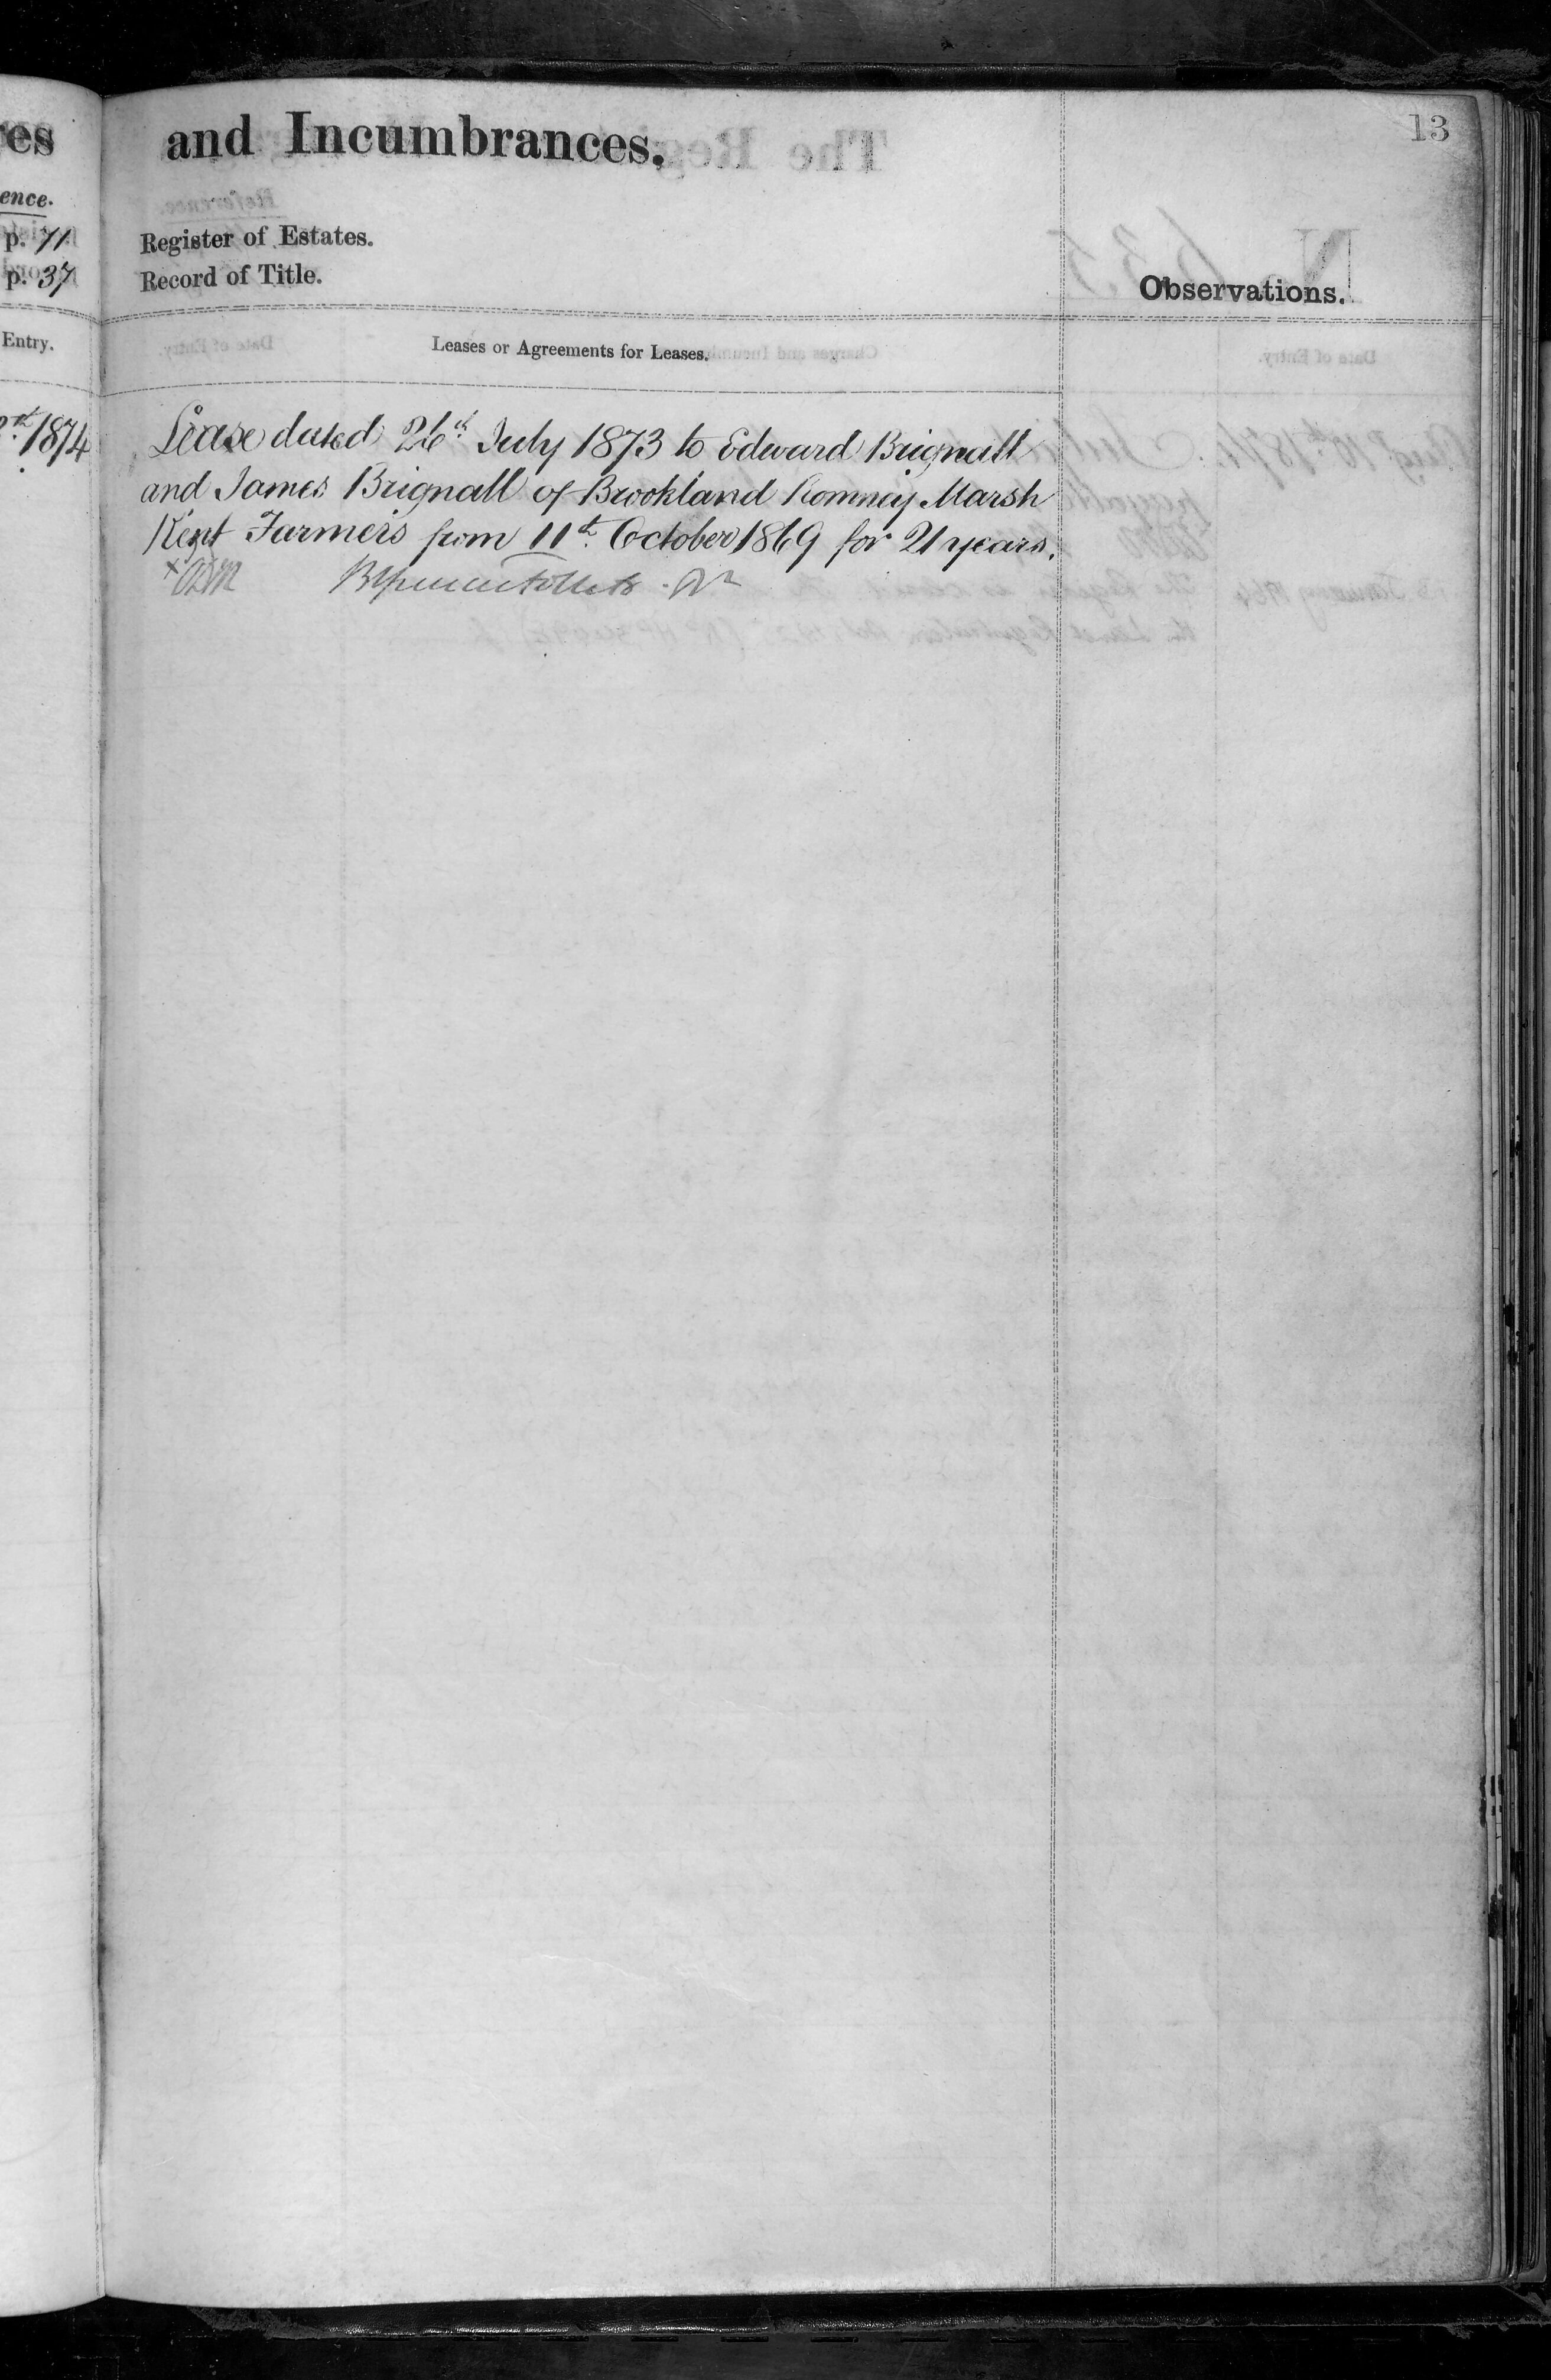 res
ence.
p. 71
p. 37
Entry.
1874
13
and Incumbrances.
Register of Estates.
Record of Title.
Observations.
Leases or Agreements for Leases.
Lease dated 26th July 1873 to Edward Brignall
and James Brignall of Brookland Romney Marsh
Kent Farmers from 11th October 1869 for 21 years.